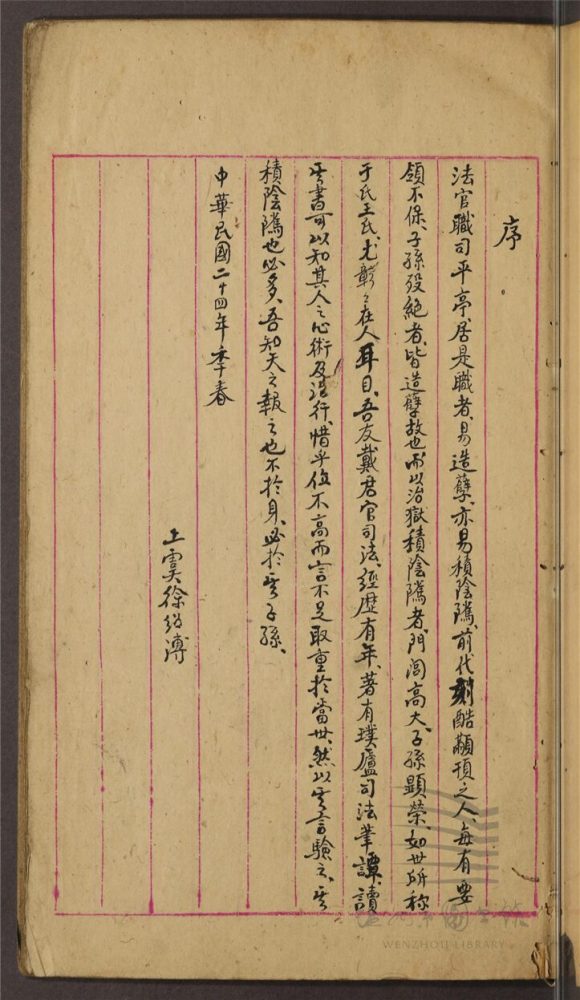 序
法官職司平亭、居是職者、易造孽、亦易積陰隲、前代刻酷顢頇之人、每有要
領不保、子孫殁絕者、皆造孽故也、而以治獄積陰隲者、門閭高大、子孫顯榮、如世所称
于氏王氏、尤彰彰在人耳目、吾友戴君官司法、經歷有年、著有璞廬司法筆譚、讀
其書可以知其人之心術及治行、惜乎位不高而言不足取重於當世、然以其言驗之、其
積陰隲也必多、吾知天之報之也不於身、必於其子孫、
中華民國二十四年季春
上虞徐
WENZHOU LIBRARY